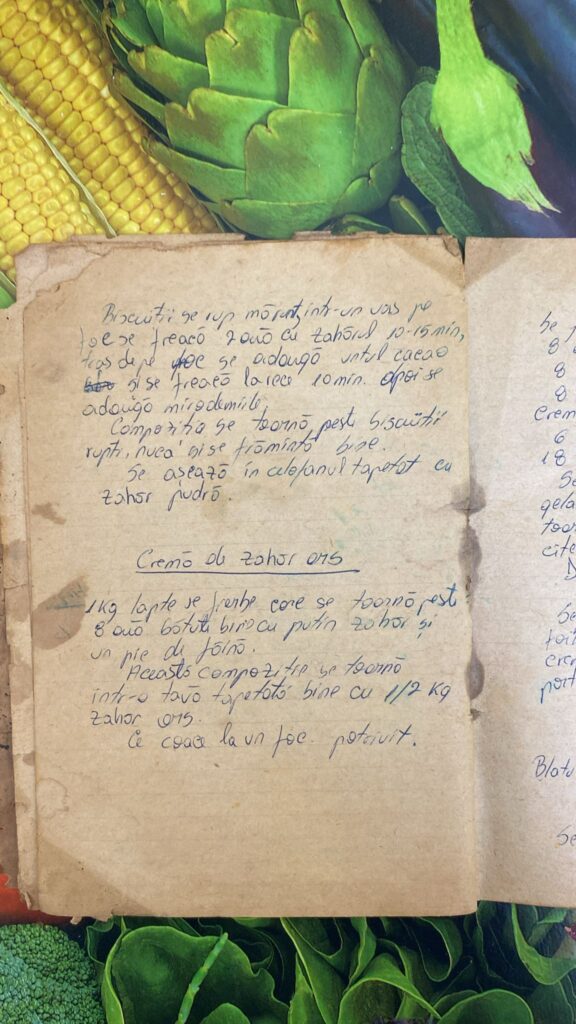 Biscuitii se rup mărunt, într-un vas pe
foc se freacă 2 ouă cu zahărul 10-15 min,
tras de pe foc se adaugă untul cacao
și se freacă la rece 10 min. apoi se
adaugă mirodeniile.
Compozitia se toarnă peste biscuitii
rupti, nucă și se frămîntă bine.
Se asează în celofanul tapetat cu
zahăr pudră.
Cremă de zahăr ars
1 kg lapte se fierbe care se toarnă peste
8 ouă bătute bine cu putin zahăr și
un pic de făină.
Această compozitie se toarnă
într-o tavă tapetată bine cu 1/2 kg
zahăr ars.
Ce coace la un foc potrivit.
Se
8
8
8
Crem
6
18
Se
gela
toar
cite
Se
crem
Blatu
Se